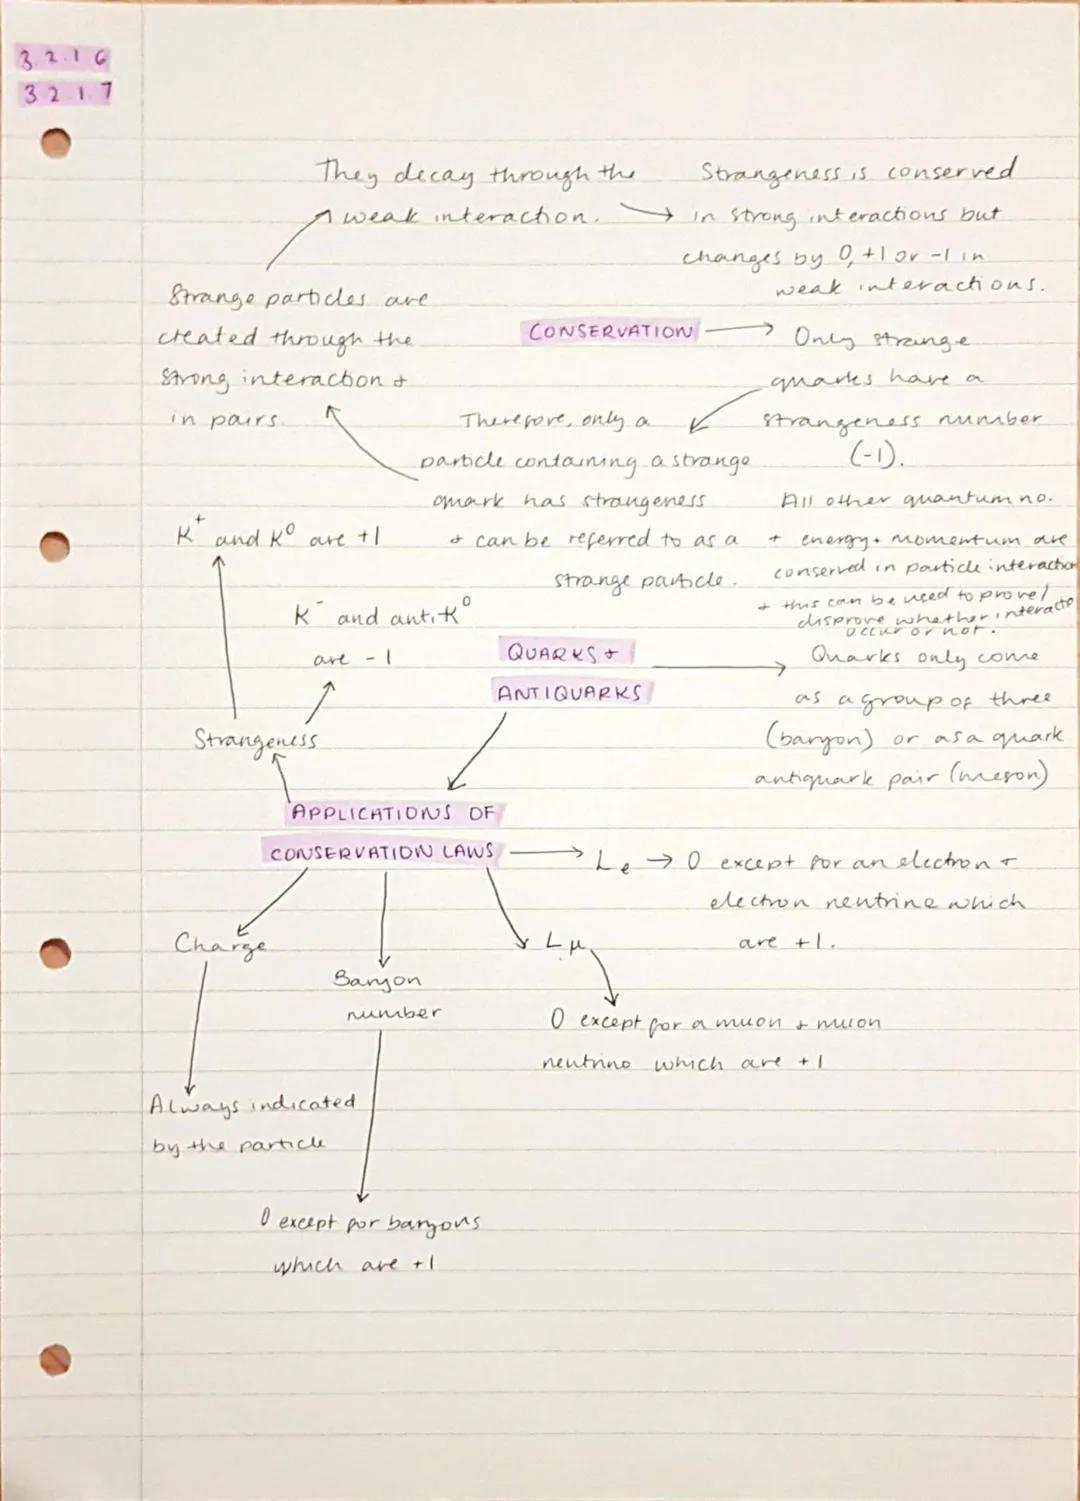 3.2.1.6
3.2.1.7
They decay through the
weak interaction.
Strangeness is conserved
in strong interactions but
changes by 0, +1 or -1 in
weak interactions.
Strange particles are
created through the
strong interaction +
in pairs.
CONSERVATION
Only strange
quarks have a
strangeness number
(-1).
Therefore, only a
particle containing a strange
quark has strangeness
+ can be referred to as a
strange particle.
All other quantum no.
+ energy + momentum are
conserved in particle interaction
+ this can be used to prove/
disprove whether interactio
occur or not.
K⁺ and K⁰ are +1
K⁻ and anti K⁰
are -1
QUARKS +
ANTIQUARKS
Quarks only come
as a group of three
(baryon) or as a quark
antiquark pair (meson)
Strangeness
APPLICATIONS OF
CONSERVATION LAWS
Le → 0 except for an electron +
electron neutrine which
are +1.
Charge
Baryon
number
Lμ
0 except for a muon + muon
neutrino which are +1
Always indicated
by the particle
0 except for baryons
which are +1